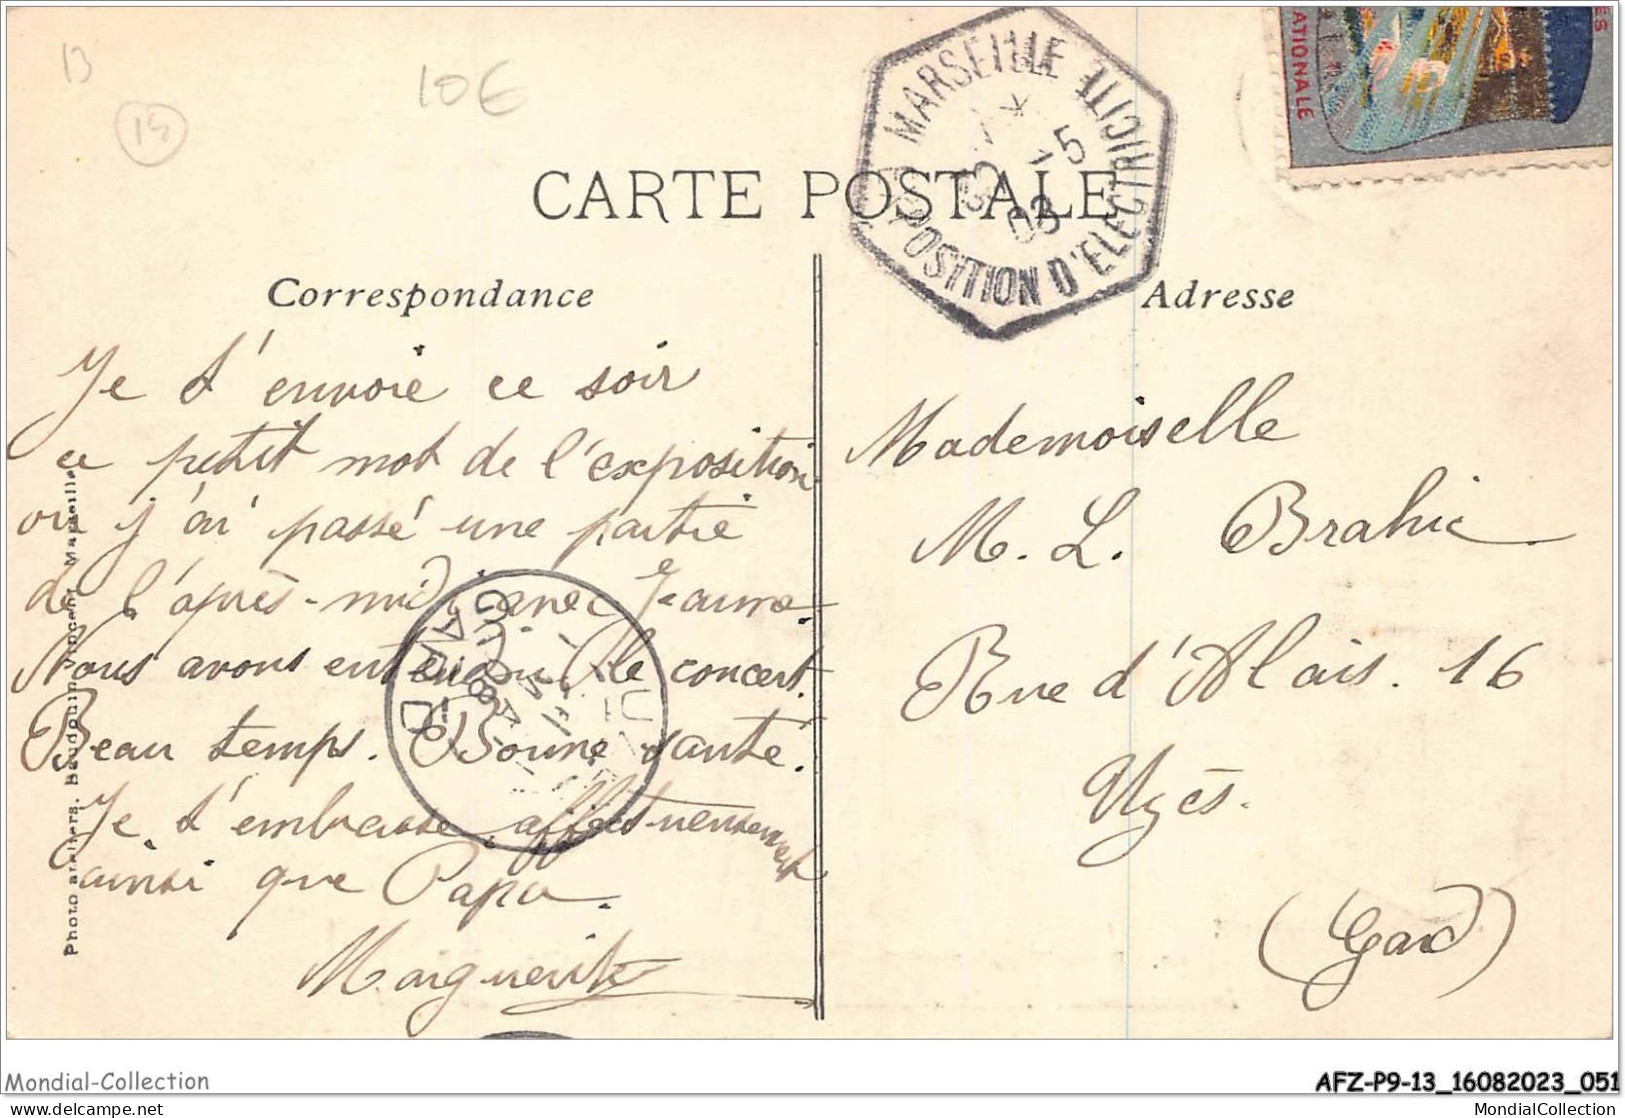 13
15
10€
MARSEILLE
EXPOSITION D'ELECTRICITE
*
-5
08
ES
ATIONALE
CARTE POSTALE
Correspondance
Adresse
Je t'envoie ce soir
ce petit mot de l'exposition
ou j'ai passé une partie
de l'après-midi avec Jeanne
Nous avons entendu le concert.
Beau temps. Bonne santé.
Je t'embrasse affectueusement
ainsi que Papa.
Marguerite
UZES
GARD
Mademoiselle
M. L. Brahic
Rue d'Alais. 16
Uzès.
(Gard)
Photo ateliers. Baudouin, Vincent, Marseille.
Mondial-Collection
AFZ-P9-13_16082023_051
www.delcampe.net
MondialCollection